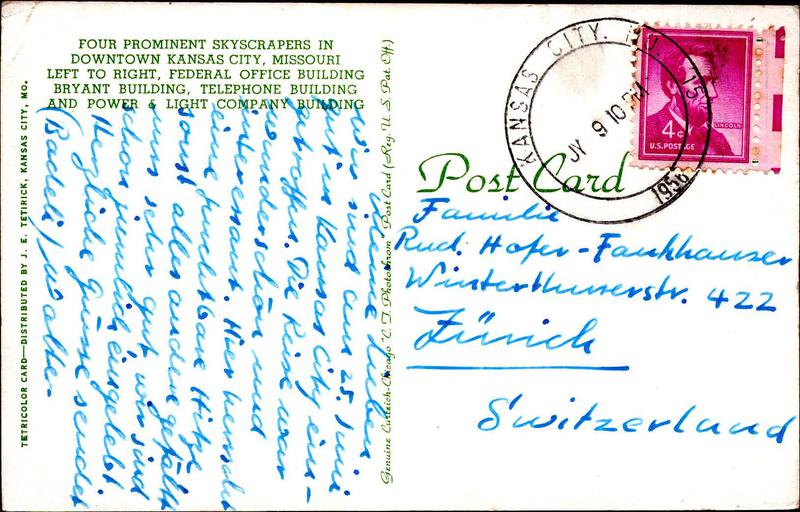 FOUR PROMINENT SKYSCRAPERS IN
DOWNTOWN KANSAS CITY, MISSOURI
LEFT TO RIGHT, FEDERAL OFFICE BUILDING
BRYANT BUILDING, TELEPHONE BUILDING
AND POWER & LIGHT COMPANY BUILDING
TETRICOLOR CARD—DISTRIBUTED BY J. E. TETIRICK, KANSAS CITY, MO.
Meine Lieben
Wir sind am 25. Juni
gut in Kansas City ein-
getroffen. Die Reise war
wunderschön und
interessant. Hier herrscht
eine furchtbare Hitze
sonst alles andere gefällt
uns sehr gut, wir sind
schon ziemlich eingelebt.
Herzliche Grüsse sendet
Walter
Genuine Curteich-Chicago "C. T. Photochrom" Post Card (Reg. U. S. Pat. Off.)
Post Card
KANSAS CITY, MO. 15
JY 9 10 PM
1956
LINCOLN
4c
U.S. POSTAGE
Familie
Rud. Hofer-Fankhauser
Winterthurerstr. 422
Zürich
Switzerland